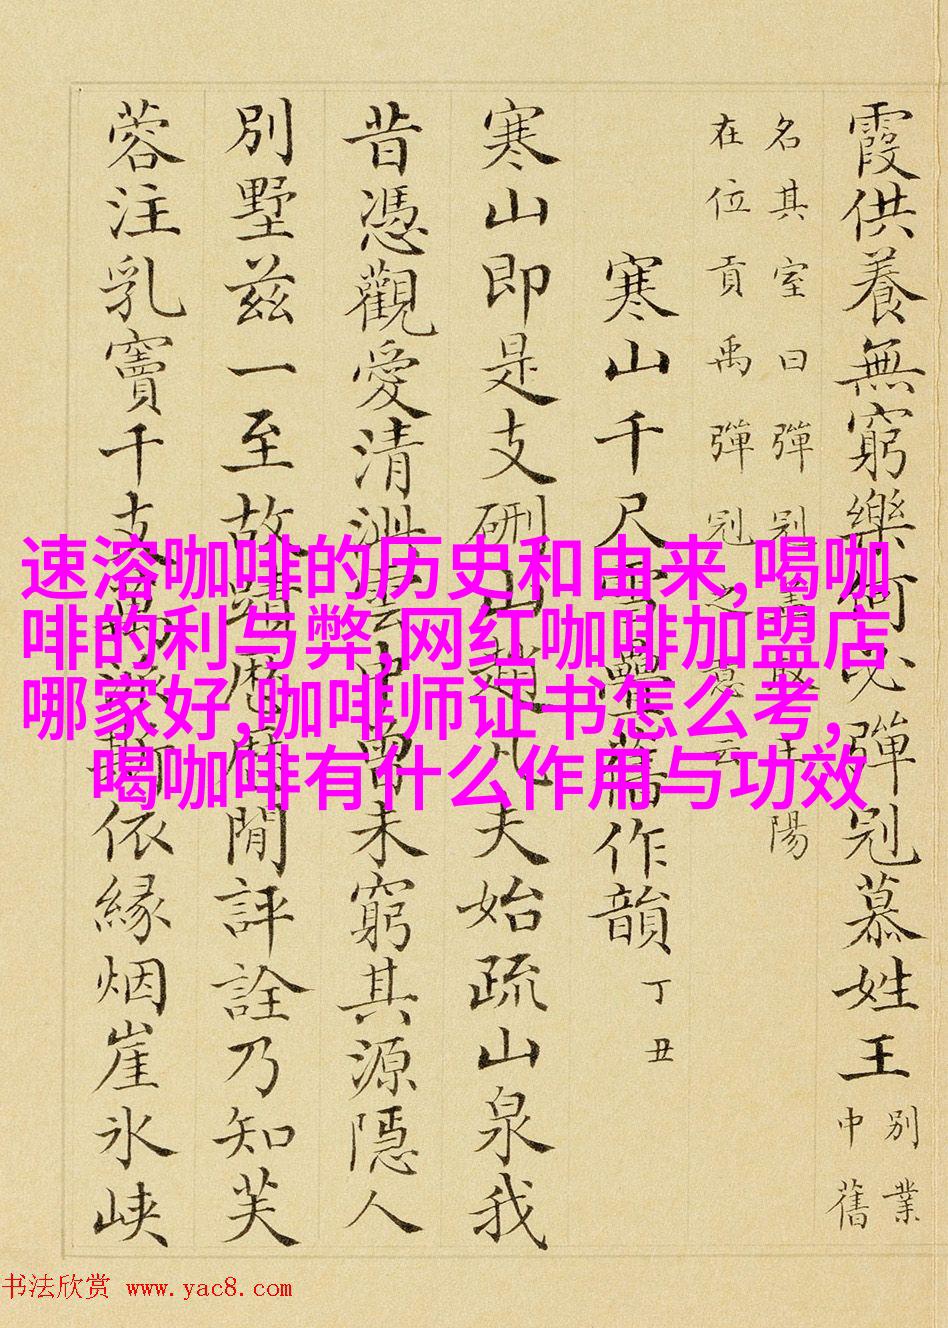 霞供養無窮樂何必弾冠慕姓王
別業
中舊
名其室曰弾冠盖取王陽
在位貢禹弾冠之意云
寒山千尺雪疊舊作韻 丁丑
寒山即是支硎山趙凡夫始疏山泉我
昔憑觀愛清泚雲中曽未窮其源隱人
別墅兹一至故蹟歷歷閒評詮乃知芙
蓉注乳竇千支萬派斯依緣烟崖氷峡
速溶咖啡的历史和由来,喝咖
啡的利与弊,网红咖啡加盟店
哪家好,咖啡师证书怎么考,
喝咖啡有什么作用与功效
书法欣赏 www.yac8.com